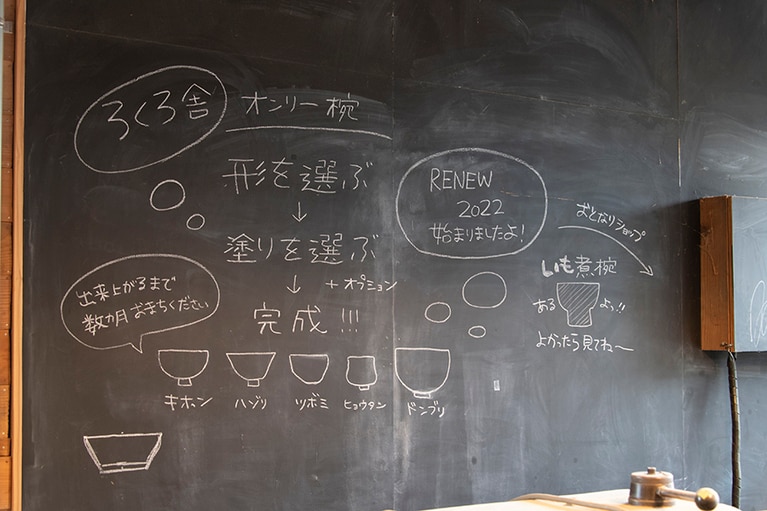 ろくろ舎
オンリー椀
形を選ぶ
↓
塗りを選ぶ
↓ +オプション
完成!!!
出来上がるまで
数カ月おまちください
キホン ハゾリ ツボミ ヒョウタン ドンブリ
RENEW
2022
始まりましたよ!
おとなりショップ
いも煮椀
ある よっ!!
よかったら見てね〜